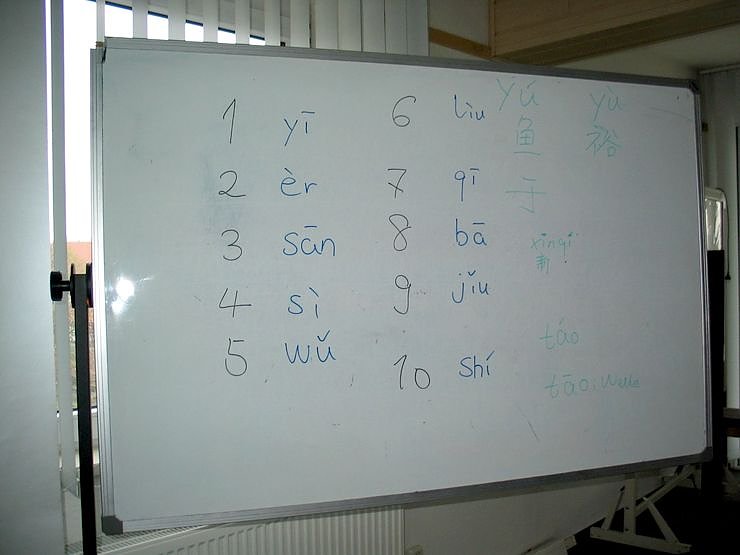 1 yī
2 èr
3 sān
4 sì
5 wǔ
6 lìu
7 qī
8 bā
9 jǐu
10 shí
yú yù
鱼 裕
于
xīnqí
新
táo